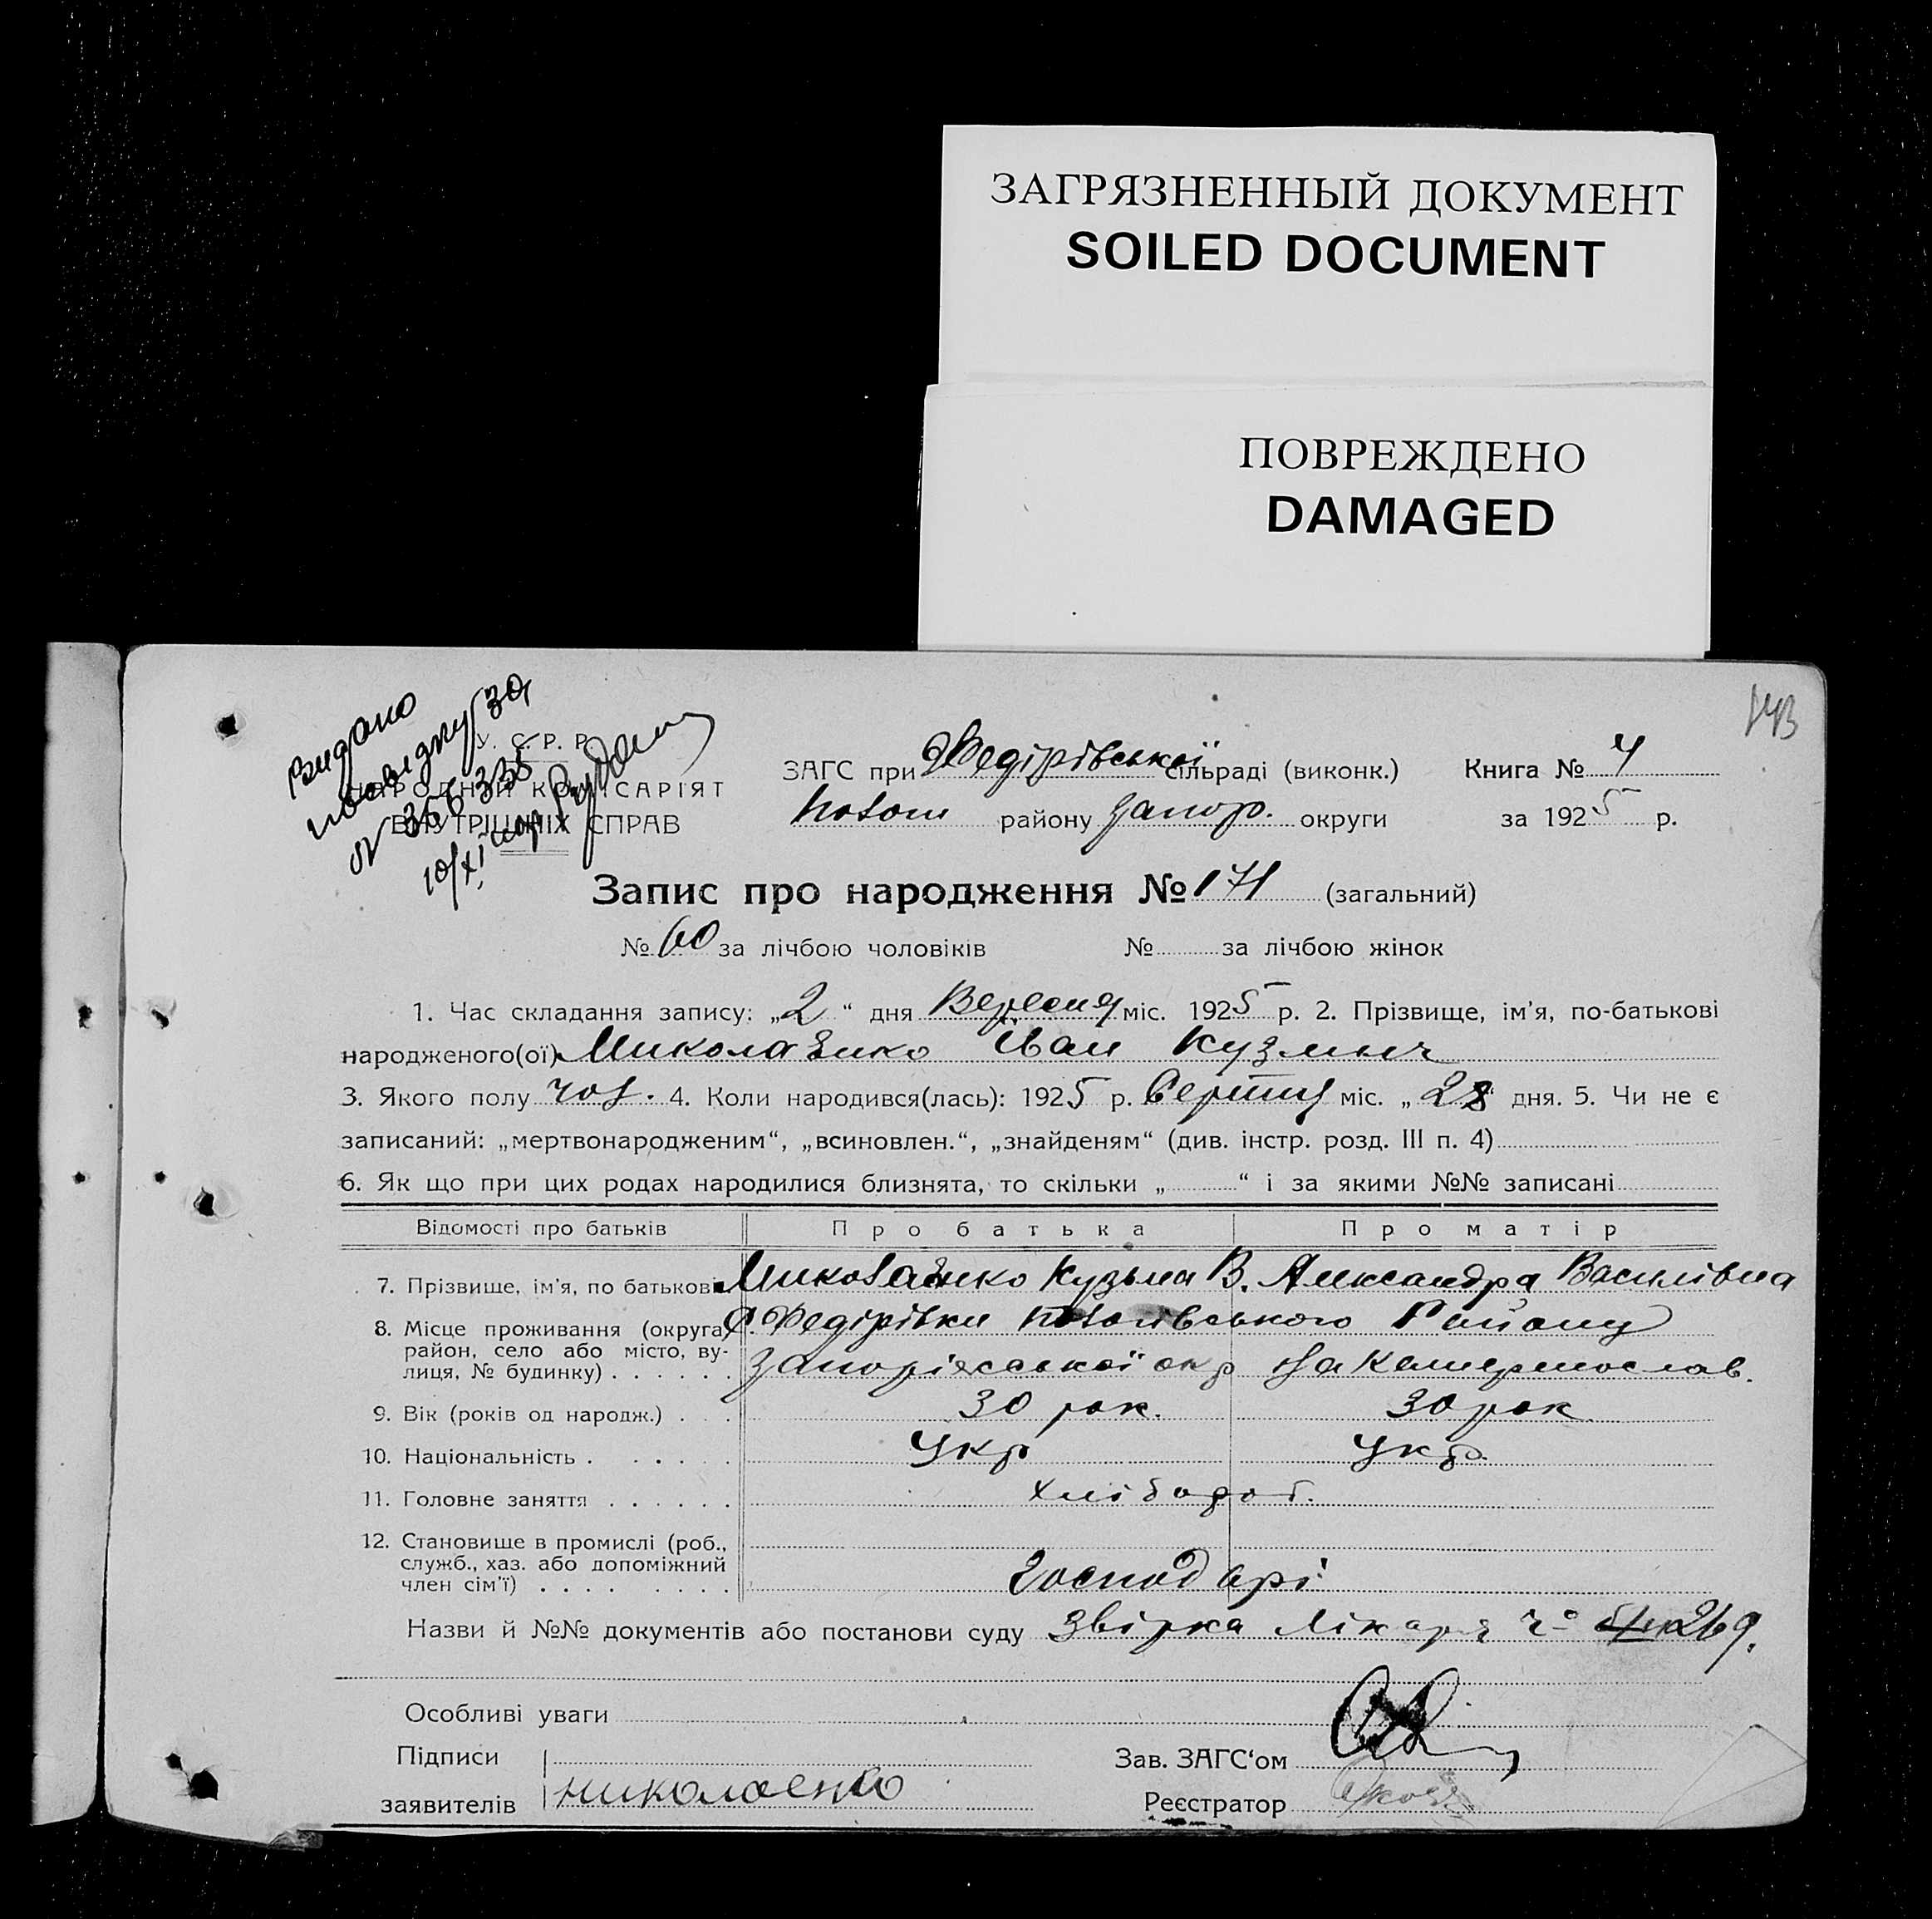 ЗАГРЯЗНЕННЫЙ ДОКУМЕНТ
SOILED DOCUMENT
ПОВРЕЖДЕНО
DAMAGED
143
Видано
У. С. Р. Р.
НАРОДНІЙ КОМІСАРІЯТ
ВНУТРІШНІХ СПРАВ
ЗАГС при Федірівської сільраді (виконк.) Книга № 4
району Запор. округи за 1925 р.
Запис про народження № 171 (загальний)
№ 60 за лічбою чоловіків № за лічбою жінок
1. Час складання запису: „2“ дня Вересня міс. 1925 р. 2. Прізвище, ім’я, по-батькові
народженого(ої) Миколаєнко Іван Кузмыч
3. Якого полу чол. 4. Коли народився(лась): 1925 р. Серпня міс. „28“ дня. 5. Чи не є
записаний: „мертвонародженим“, „всиновлен.“, „знайденям“ (див. інстр. розд. III п. 4)
6. Як що при цих родах народилися близнята, то скільки „ “ і за якими №№ записані
Відомості про батьків Про батька Про матір
7. Прізвище, ім’я, по батькові Миколаєнко Кузьма В. Александра Василівна
8. Місце проживання (округа, С. Федірівки Район
район, село або місто, ву-
лиця, № будинку) Запоріжської окр
9. Вік (років од народж.) 30 рок. 30 рок
10. Національність Укр Укр.
11. Головне заняття хлібороб.
12. Становище в промислі (роб.,
служб., хаз. або допоміжний
член сім’ї) Господарі
Назви й №№ документів або постанови суду Звірка Лікаря 269.
Особливі уваги
Підписи Зав. ЗАГС‘ом
заявителів Николаенко Реєстратор